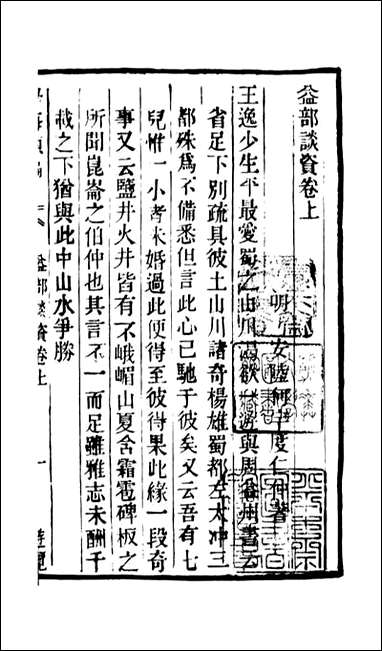 益部談資卷上
明 安陸何宇度仁仲著
王逸少生平最愛蜀之山川思欲一遊與周益州書云
省足下別疏具彼土山川諸奇楊雄蜀都左太冲三
都殊爲不備悉但言此心已馳于彼矣又云吾有七
兒惟一小者未婚過此便得至彼得果此緣一段奇
事又云鹽井火井皆有不峨嵋山夏含霜雹碑板之
所聞崑崙之伯仲也其言不一而足雖雅志未酬千
載之下猶與此中山水爭勝
益部談資卷上
一
遊覽